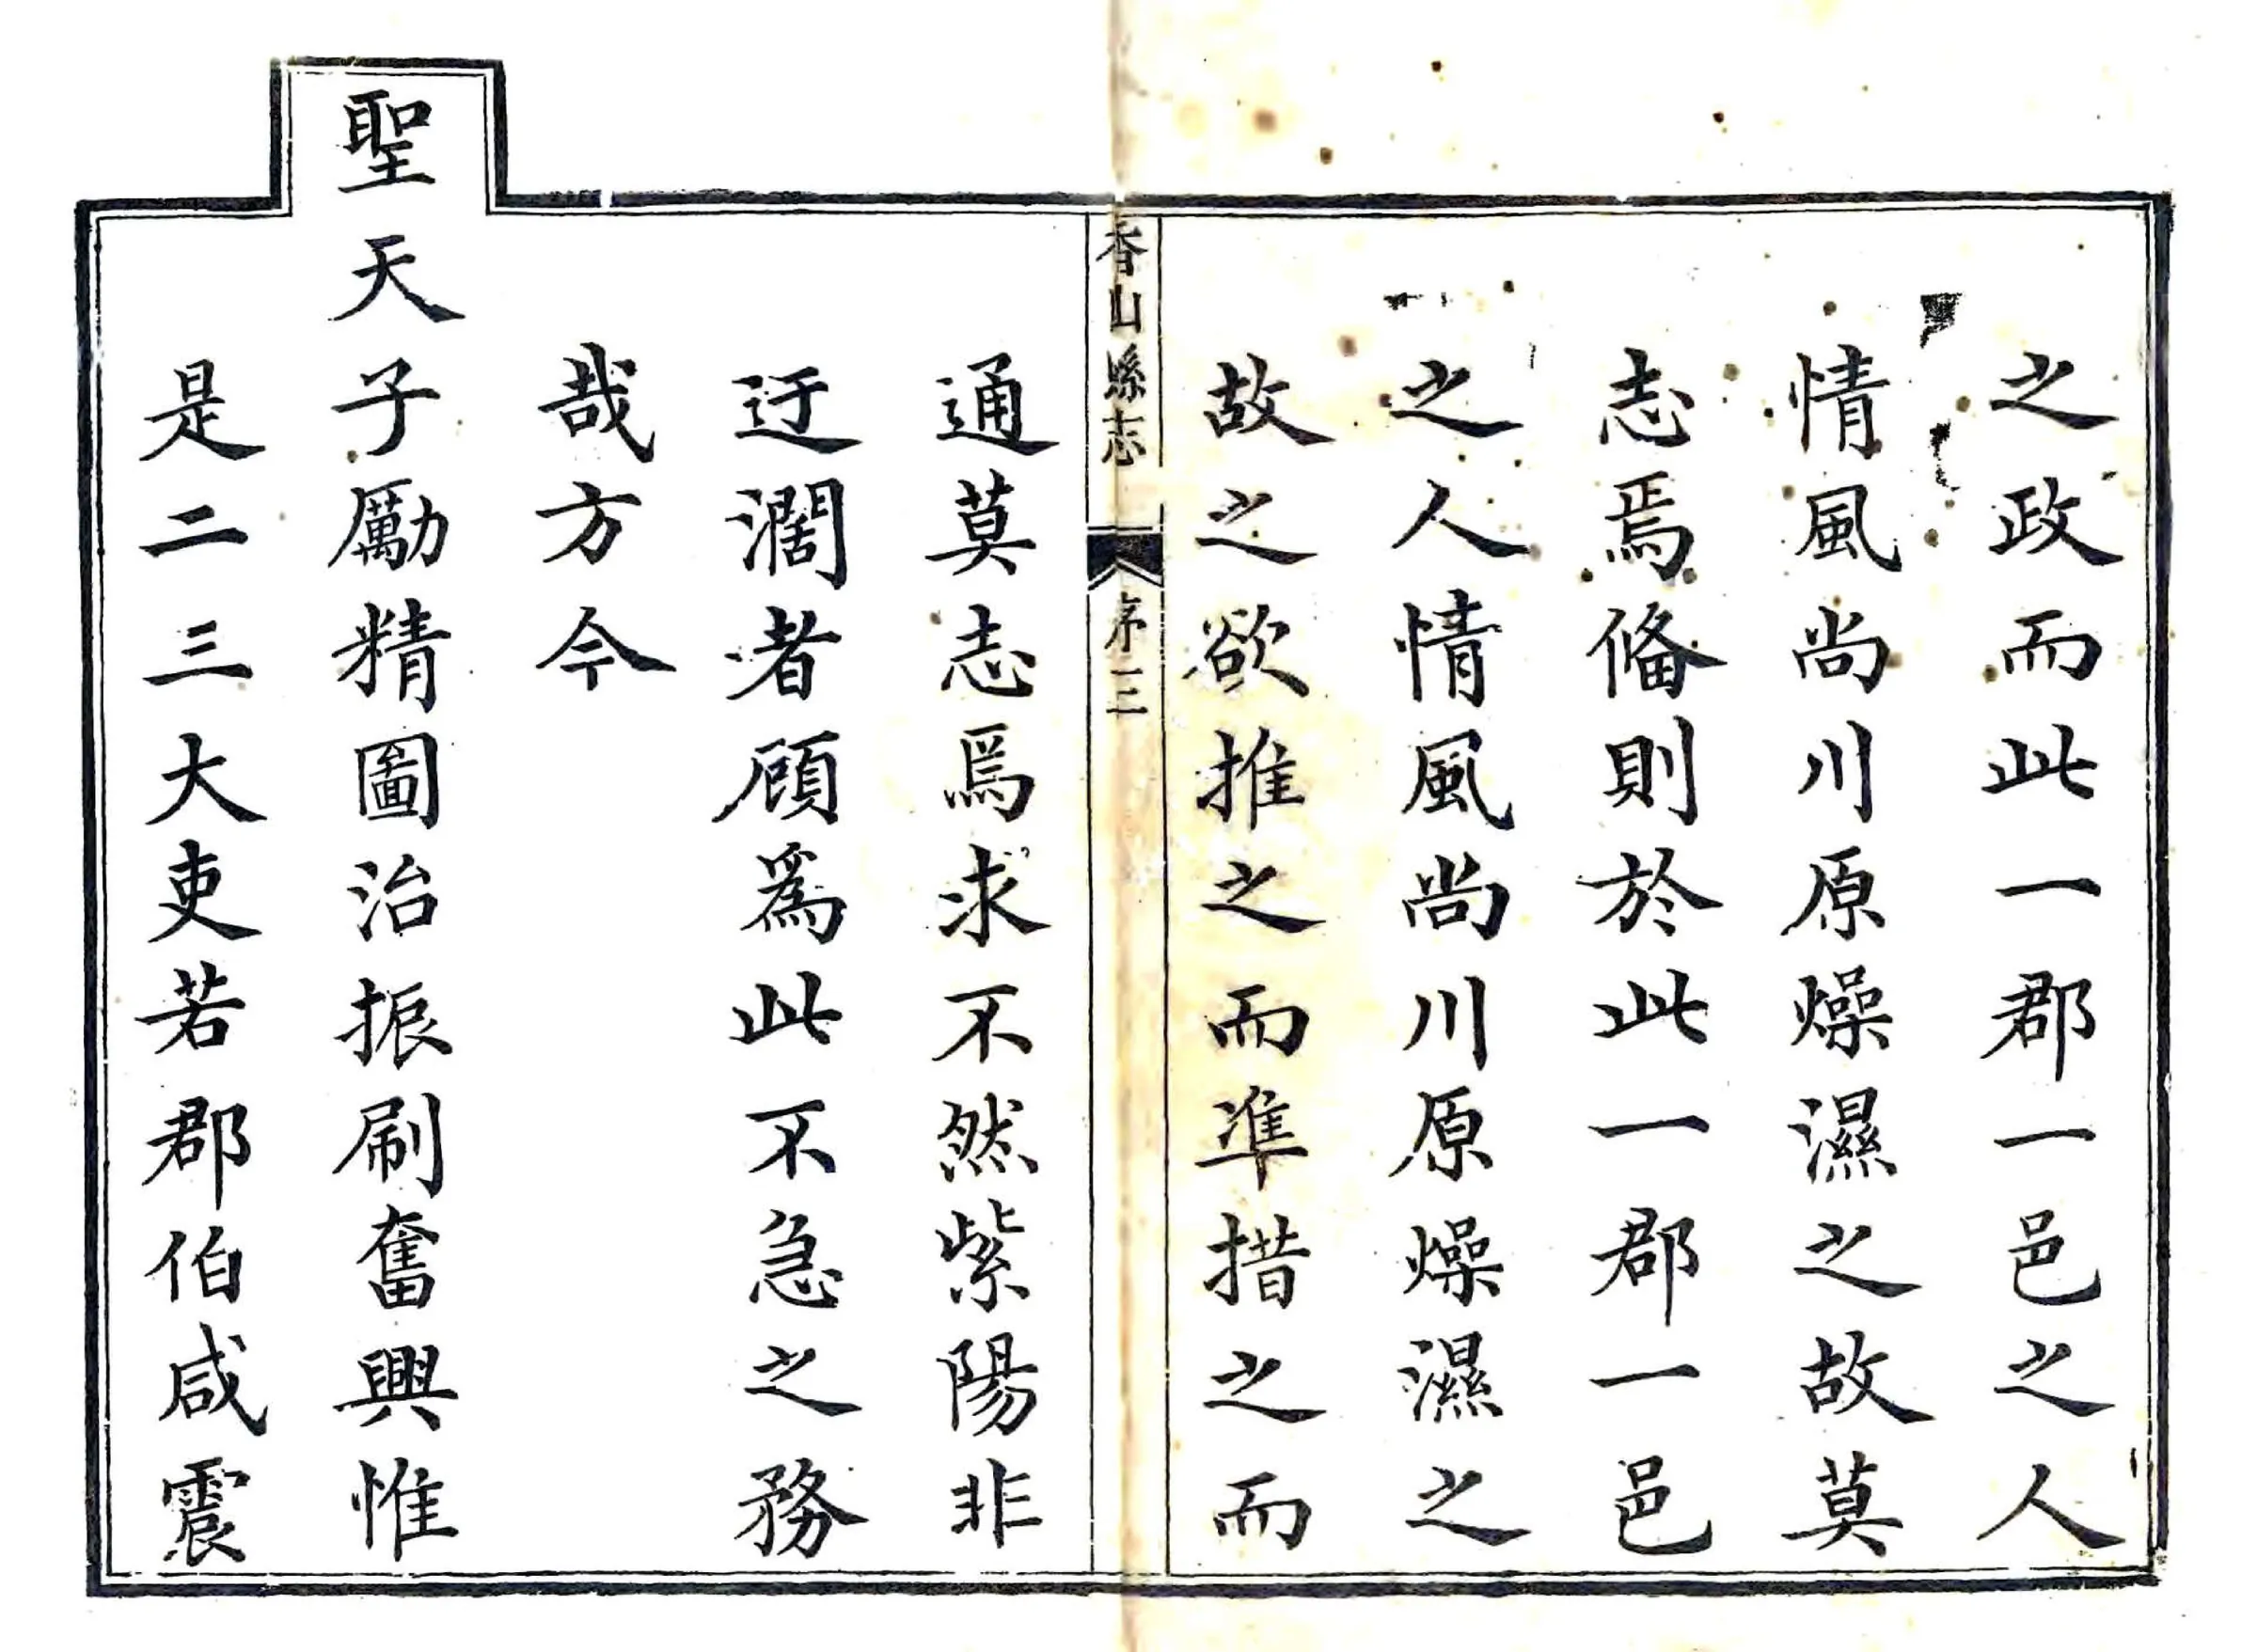 之政而此一郡一邑之人
情風尚川原燥濕之故莫
志焉偹則於此一郡一邑
之人情風尚川原燥濕之
故之欲推之而準措之而
香山縣志
序三
通莫志焉求不然紫陽非
迂濶者顧爲此不急之務
哉方今
聖天子勵精圖治振刷奮興惟
是二三大吏若郡伯咸震